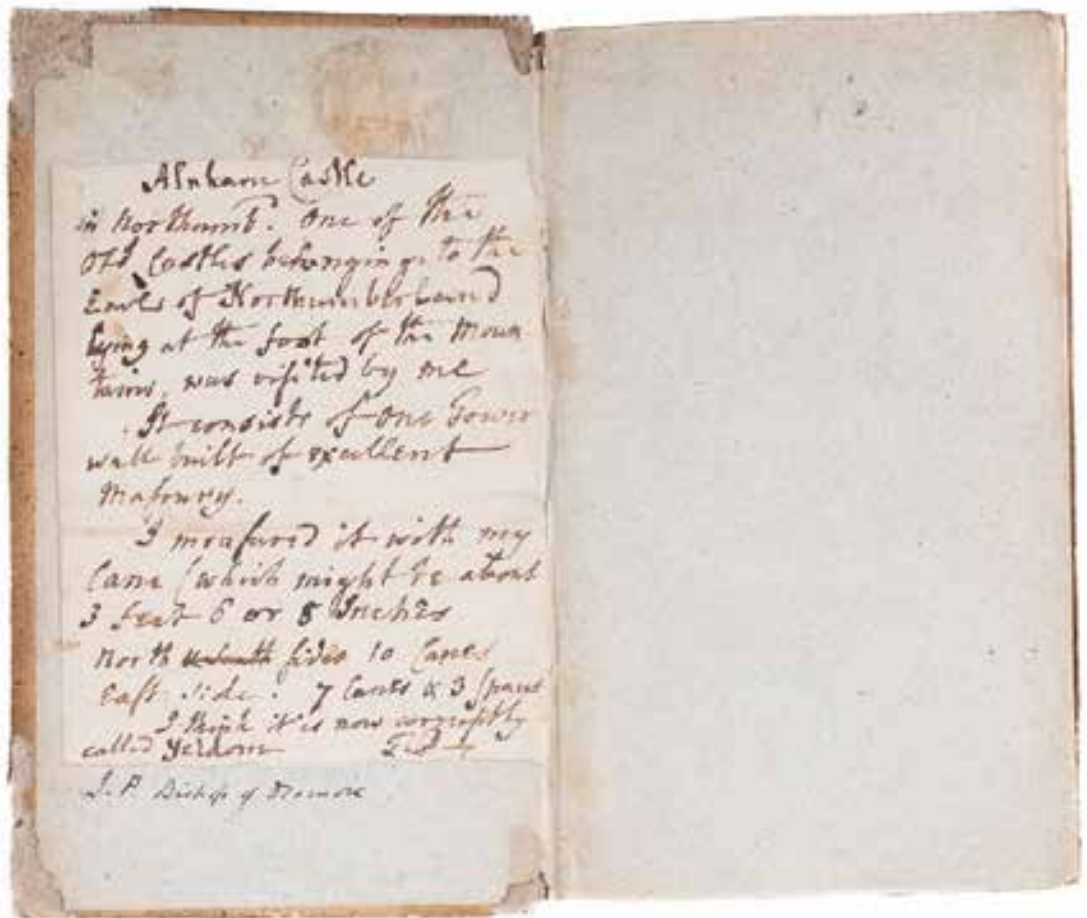 Alnham Castle
in Northumb. One of the
Old Castles belonging to the
Earls of Northumberland
lying at the foot of the Moun
tains, was visited by me
It consists of One Tower
wall built of excellent
Masonry.
I measured it with my
Cane (which might be about
3 Feet 6 or 8 Inches
North sides 10 Canes
East side: 7 Canes & 3 spans
I think it is now corruptly
called Yeldom
Bishop of Dromore